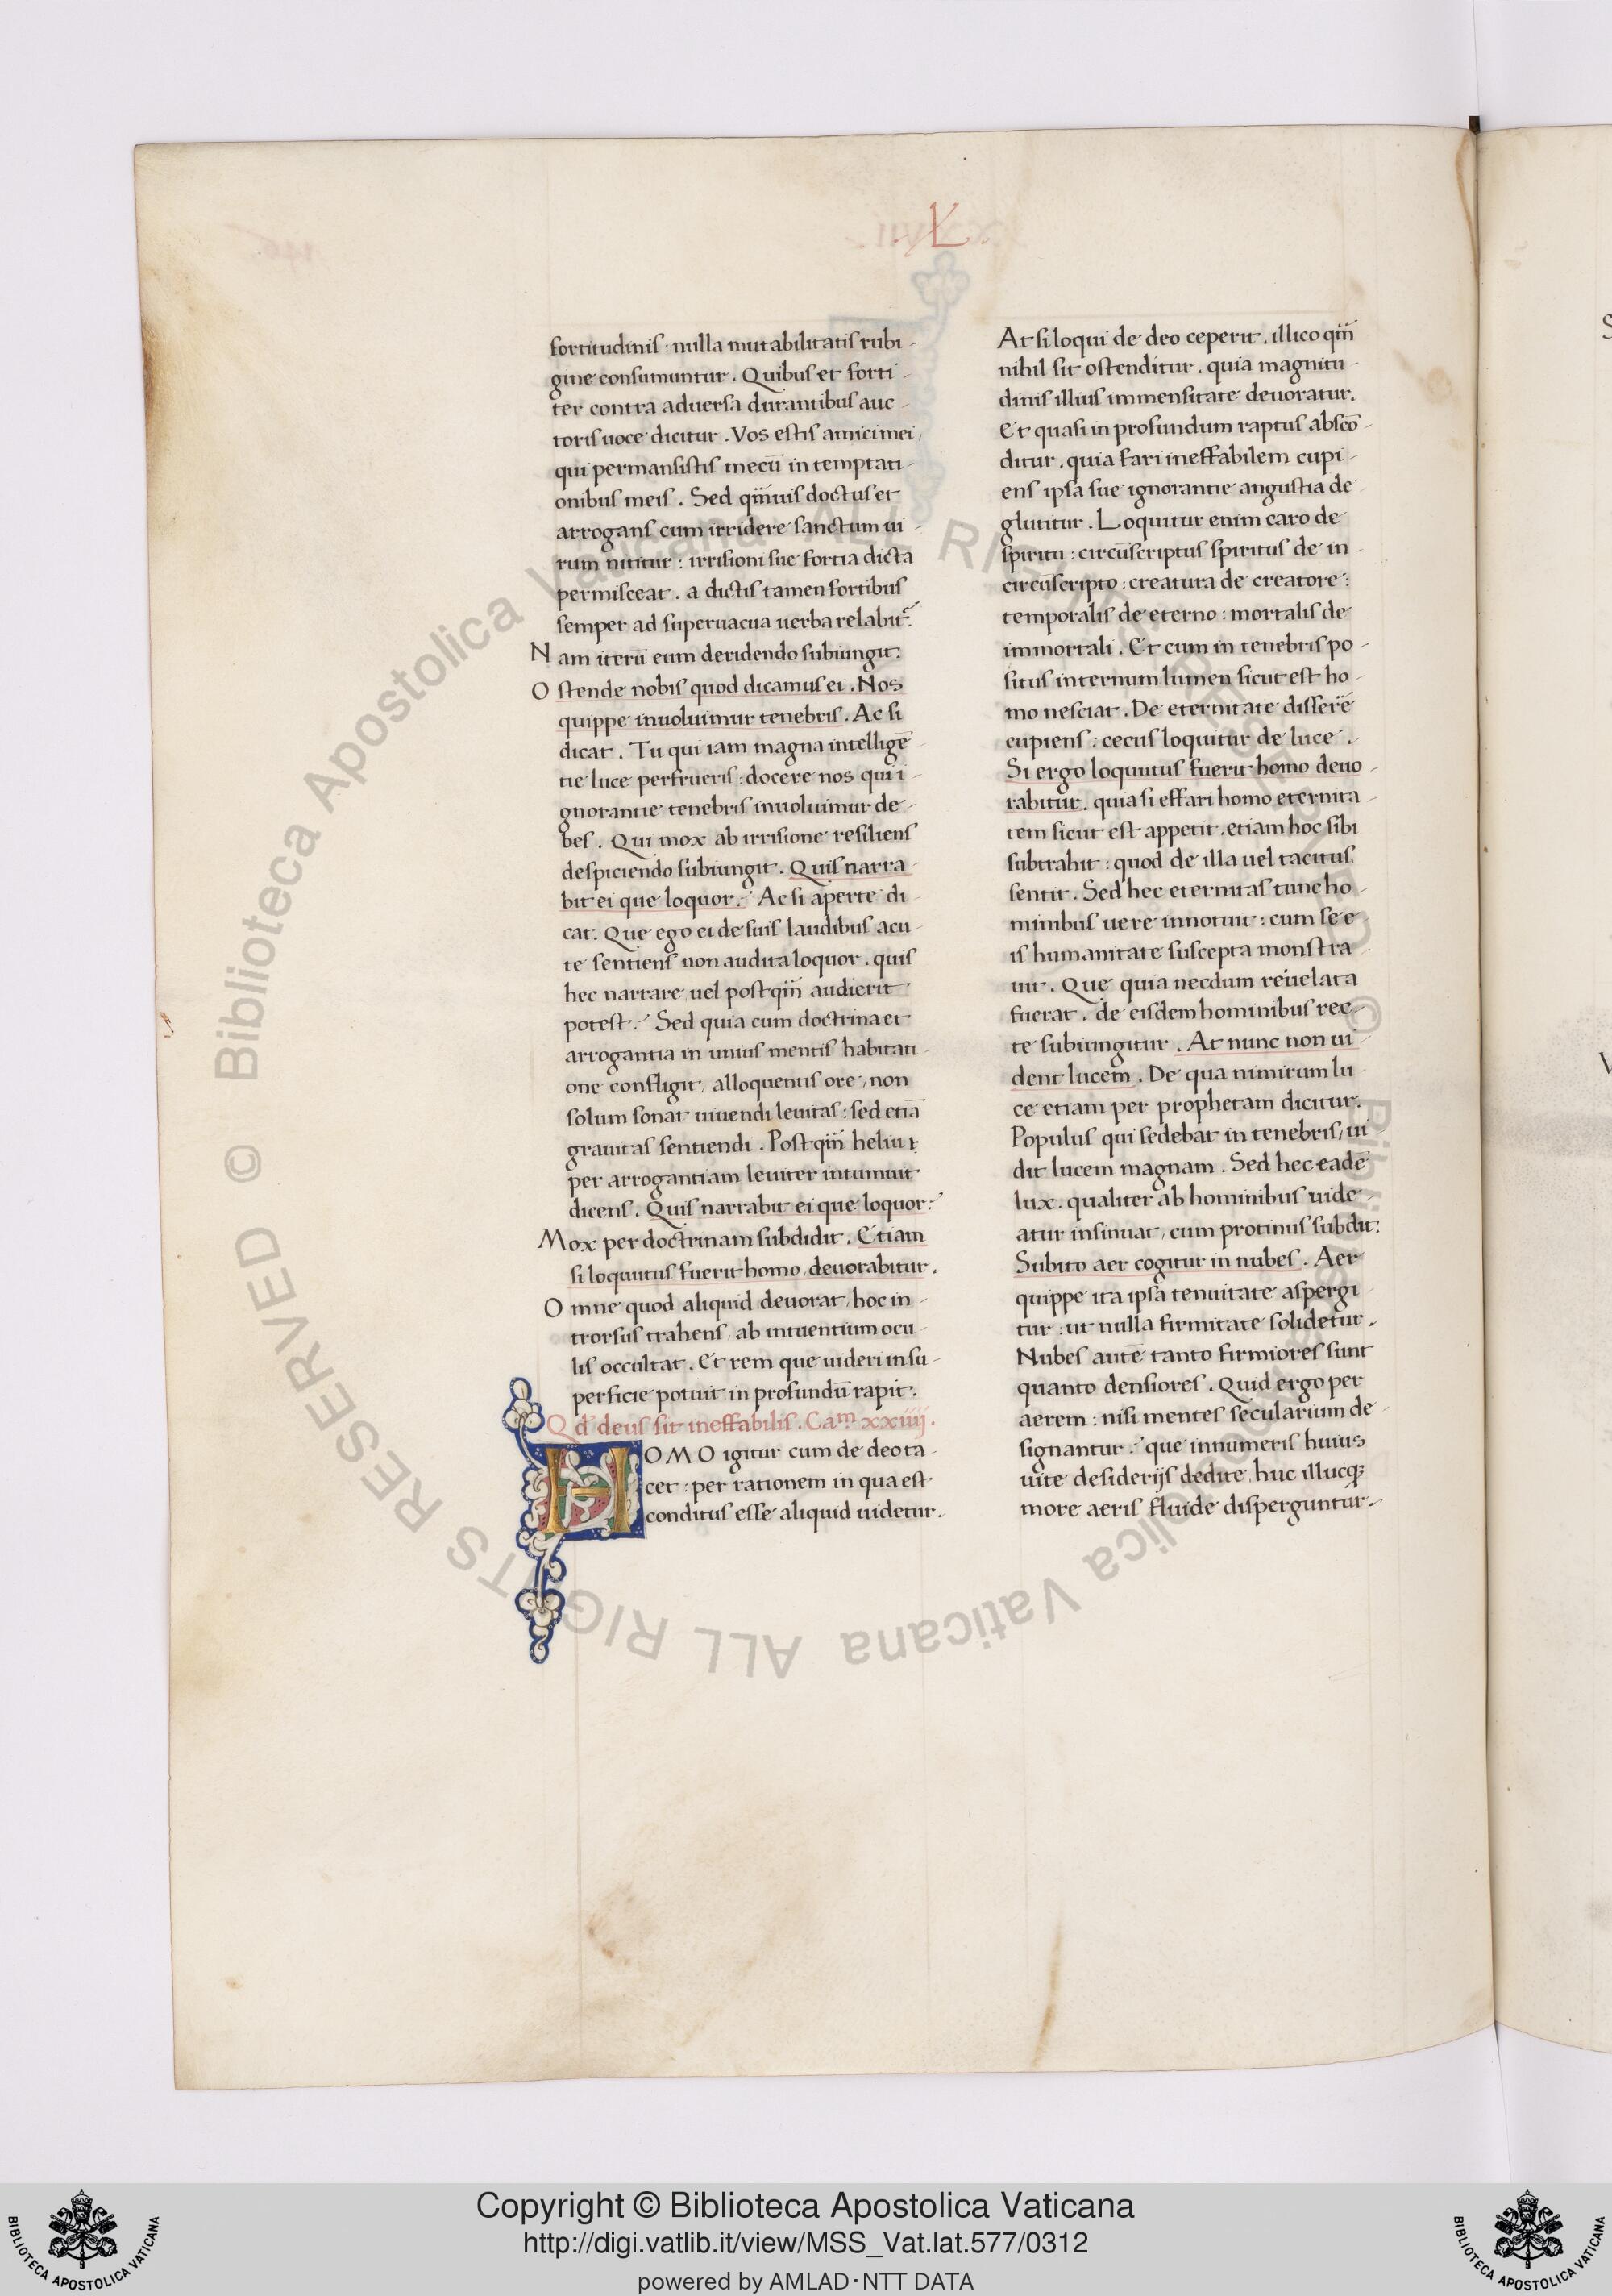 L
fortitudinis : nulla mutabilitatis rubi-
gine consumuntur . Quibus et forti-
ter contra aduersa durantibus auc-
toris uoce dicitur . Vos estis amici mei,
qui permansistis mecū in temptati-
onibus meis . Sed qm̄uis doctus et
arrogans cum irridere sanctum ui-
rum nititur : irrisioni sue fortia dicta
permisceat . a dictis tamen fortibus
semper ad superuacua uerba relabit̄.
Nam iterū eum deridendo subiungit:
Ostende nobis quod dicamus ei . Nos
quippe inuoluimur tenebris . Ac si
dicat . Tu qui iam magna intelligē-
tie luce perfrueris : docere nos qui i-
gnorantie tenebris inuoluimur de-
bes . Qui mox ab irrisione resiliens
despiciendo subiungit . Quis narra-
bit ei que loquor ? Ac si aperte di-
cat . Que ego ei de suis laudibus acu-
te sentiens non audita loquor . quis
hec narrare uel postqm̄ audierit
potest ? Sed quia cum doctrina et
arrogantia in unius mentis habitati-
one confligit, alloquentis ore, non
solum sonat uiuendi leuitas : sed etiā
grauitas sentiendi . Postqm̄ heliu t
per arrogantiam leuiter intumuit
dicens . Quis narrabit ei que loquor ?
Mox per doctrinam subdidit . Etiam
si loquutus fuerit homo, deuorabitur .
Omne quod aliquid deuorat, hoc in-
trorsus trahens, ab intuentium ocu-
lis occultat . Et rem que uideri in su-
perficie potuit in profundū rapit .
Qd̄ deus sit ineffabilis . Cam̄ xxiiij .
HOMO igitur cum de deo ta-
cet : per rationem in qua est
conditus esse aliquid uidetur .
At si loqui de deo ceperit . illico qm̄
nihil sit ostenditur . quia magnitu-
dinis illius immensitate deuoratur .
Et quasi in profundum raptus abscō-
ditur . quia fari ineffabilem cupi-
ens ipsa sue ignorantie angustia de
glutitur . Loquitur enim caro de
spiritu : circūscriptus spiritus de in-
circūscripto : creatura de creatore :
temporalis de eterno : mortalis de
immortali . Et cum in tenebris po-
situs internum lumen sicut est ho-
mo nesciat . De eternitate disserē
cupiens : cecus loquitur de luce .
Si ergo loquutus fuerit homo deuo-
rabitur . quia si effari homo eternita-
tem sicut est appetit . etiam hoc sibi
subtrahit : quod de illa uel tacitus
sentit . Sed hec eternitas tunc ho-
minibus uere innotuit : cum se e-
is humanitate suscepta monstra-
uit . Que quia necdum reuelata
fuerat . de eisdem hominibus rec-
te subiungitur . At nunc non ui-
dent lucem . De qua nimirum lu-
ce etiam per prophetam dicitur .
Populus qui sedebat in tenebris, ui-
dit lucem magnam . Sed hec eadē
lux . qualiter ab hominibus uide-
atur insinuat, cum protinus subdit :
Subito aer cogitur in nubes . Aer
quippe ita ipsa tenuitate aspergi-
tur : ut nulla firmitate solidetur .
Nubes autē tanto firmiores sunt
quanto densiores . Quid ergo per
aerem : nisi mentes secularium de-
signantur ? que innumeris huius
uite desiderijs dedite, huc illucq;
more aeris fluide disperguntur .
Copyright © Biblioteca Apostolica Vaticana
http://digi.vatlib.it/view/MSS_Vat.lat.577/0312
powered by AMLAD·NTT DATA
BIBLIOTECA APOSTOLICA VATICANA
BIBLIOTECA APOSTOLICA VATICANA
© Biblioteca Apostolica Vaticana ALL RIGHTS RESERVED
© Biblioteca Apostolica Vaticana ALL RIGHTS RESERVED